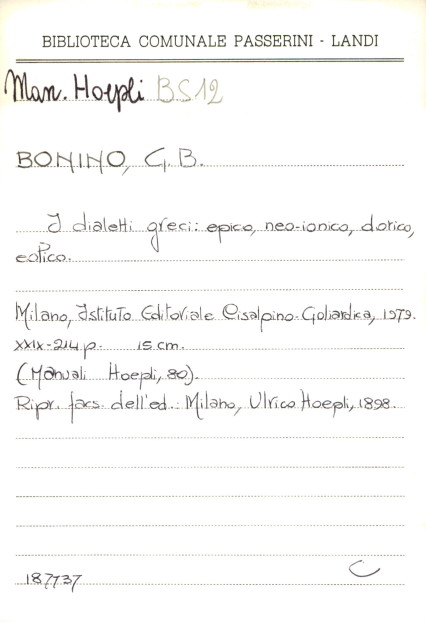 BIBLIOTECA COMUNALE PASSERINI - LANDI
Man. Hoepli BS12
BONINO, G. B.
I dialetti greci: epico, neo-ionico, dorico,
eolico.
Milano, Istituto Editoriale Cisalpino-Goliardica, 1979.
XXIX-214 p. 15 cm.
(Manuali Hoepli, 80).
Ripr. facs. dell'ed.: Milano, Ulrico Hoepli, 1898.
187737 C